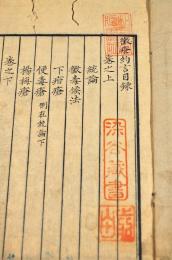 黴瘡約言目錄
卷之上
統論
黴毒候法
下疳瘡
便毒瘡 附在統論下
楊梅瘡
卷之下
深谷藏書